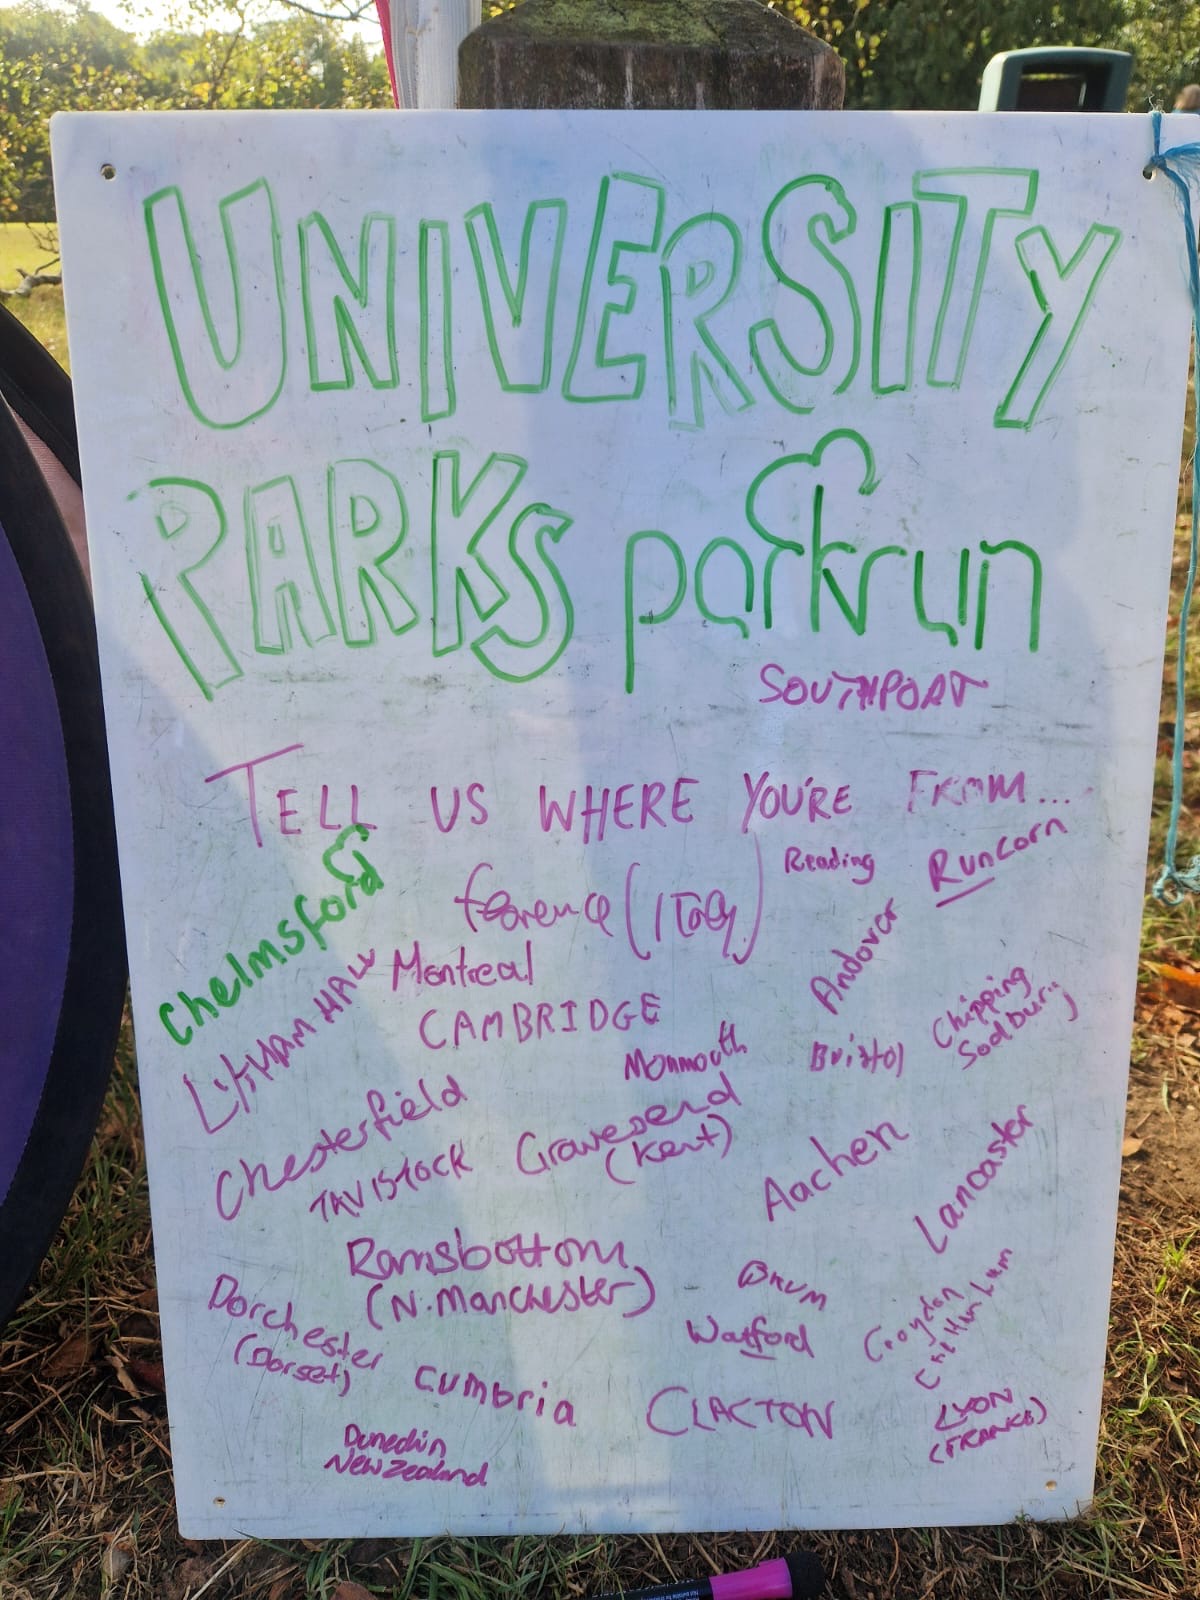 UNIVERSITY
PARKS parkrun
SOUTHPORT
TELL US WHERE YOU'RE FROM...
Chelmsford
florence (ITaly)
Reading
Runcorn
Montreal
Andover
CAMBRIDGE
Chipping
Sodbury
Monmouth
Bristol
Chesterfield
TAVISTOCK
Gravesend
(Kent)
Aachen
Lancaster
Ramsbottom
(N.Manchester)
BRUM
Dorchester
(Dorset)
Watford
Croydon
Cumbria
CLACTON
LYON
(FRANCE)
Dunedin
New Zealand